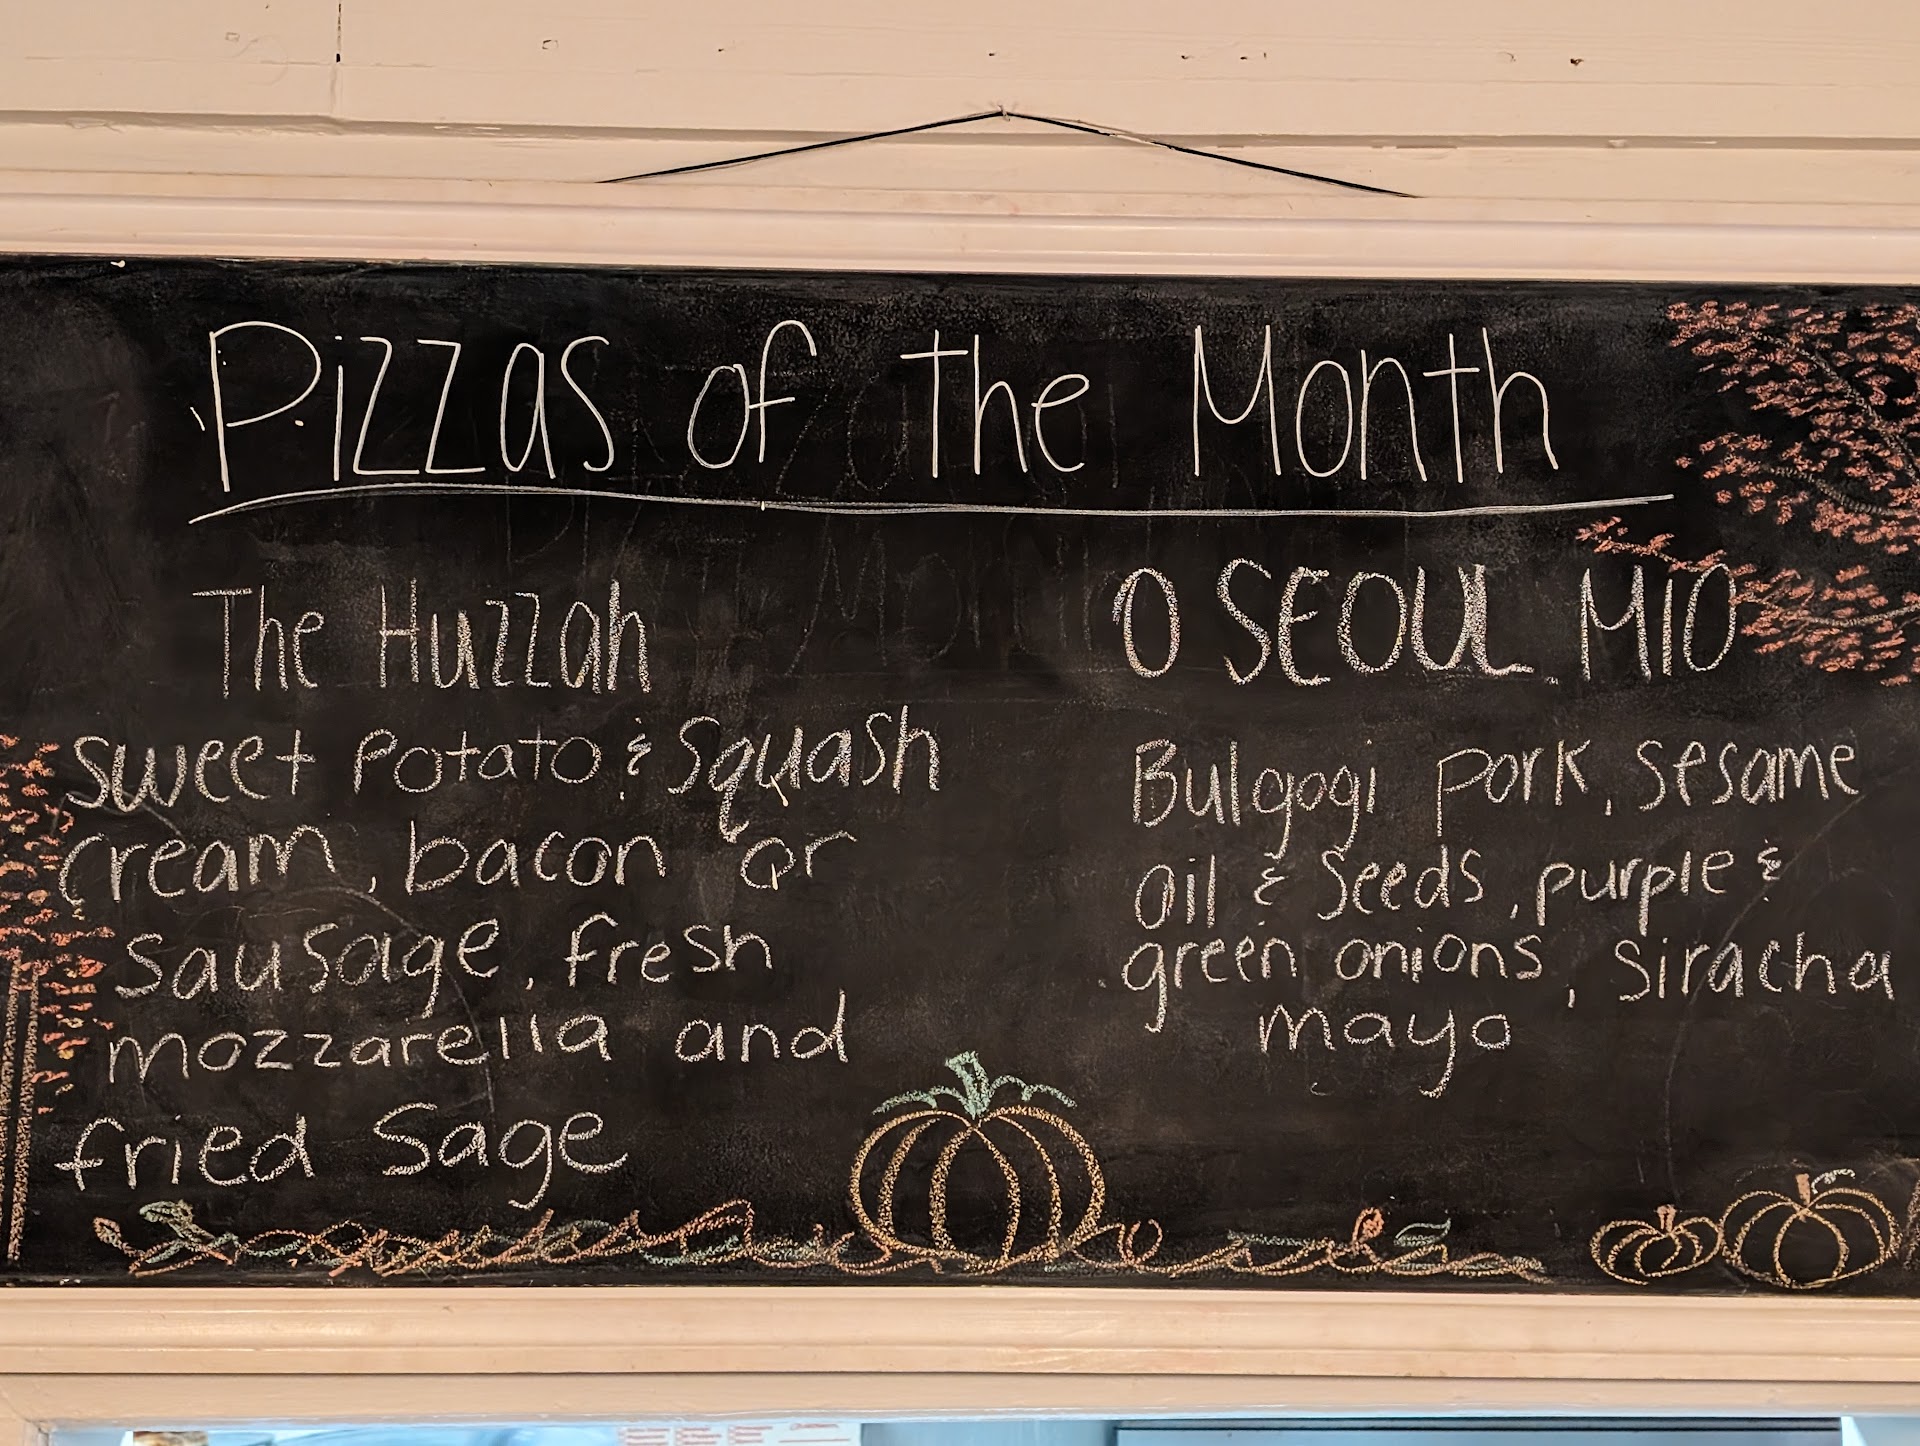 Pizzas of the Month
The Huzzah
sweet potato & Squash
cream, bacon or
sausage, fresh
mozzarella and
fried sage
O SEOUL MIO
Bulgogi pork, sesame
oil & seeds, purple &
green onions, siracha
mayo